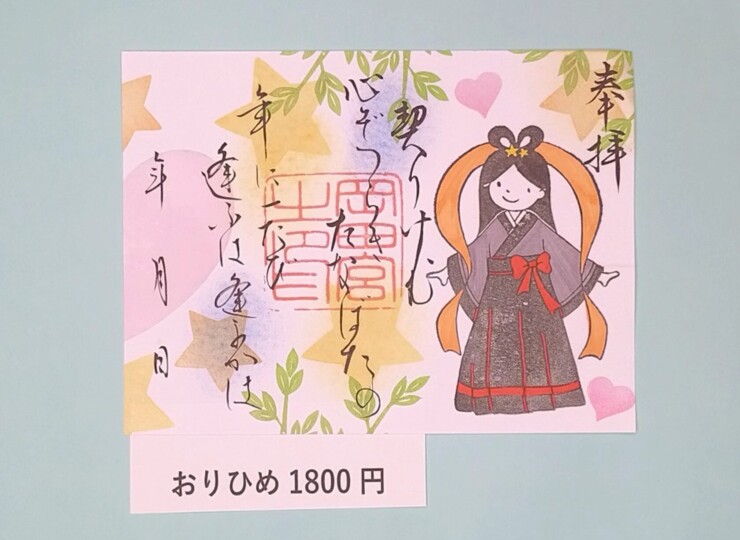 奉拝
契りけむ
心ぞつらきたなばたの
年に一たび
逢ふは逢ふかは
年 月 日
岡田宮
之印
おりひめ 1800 円